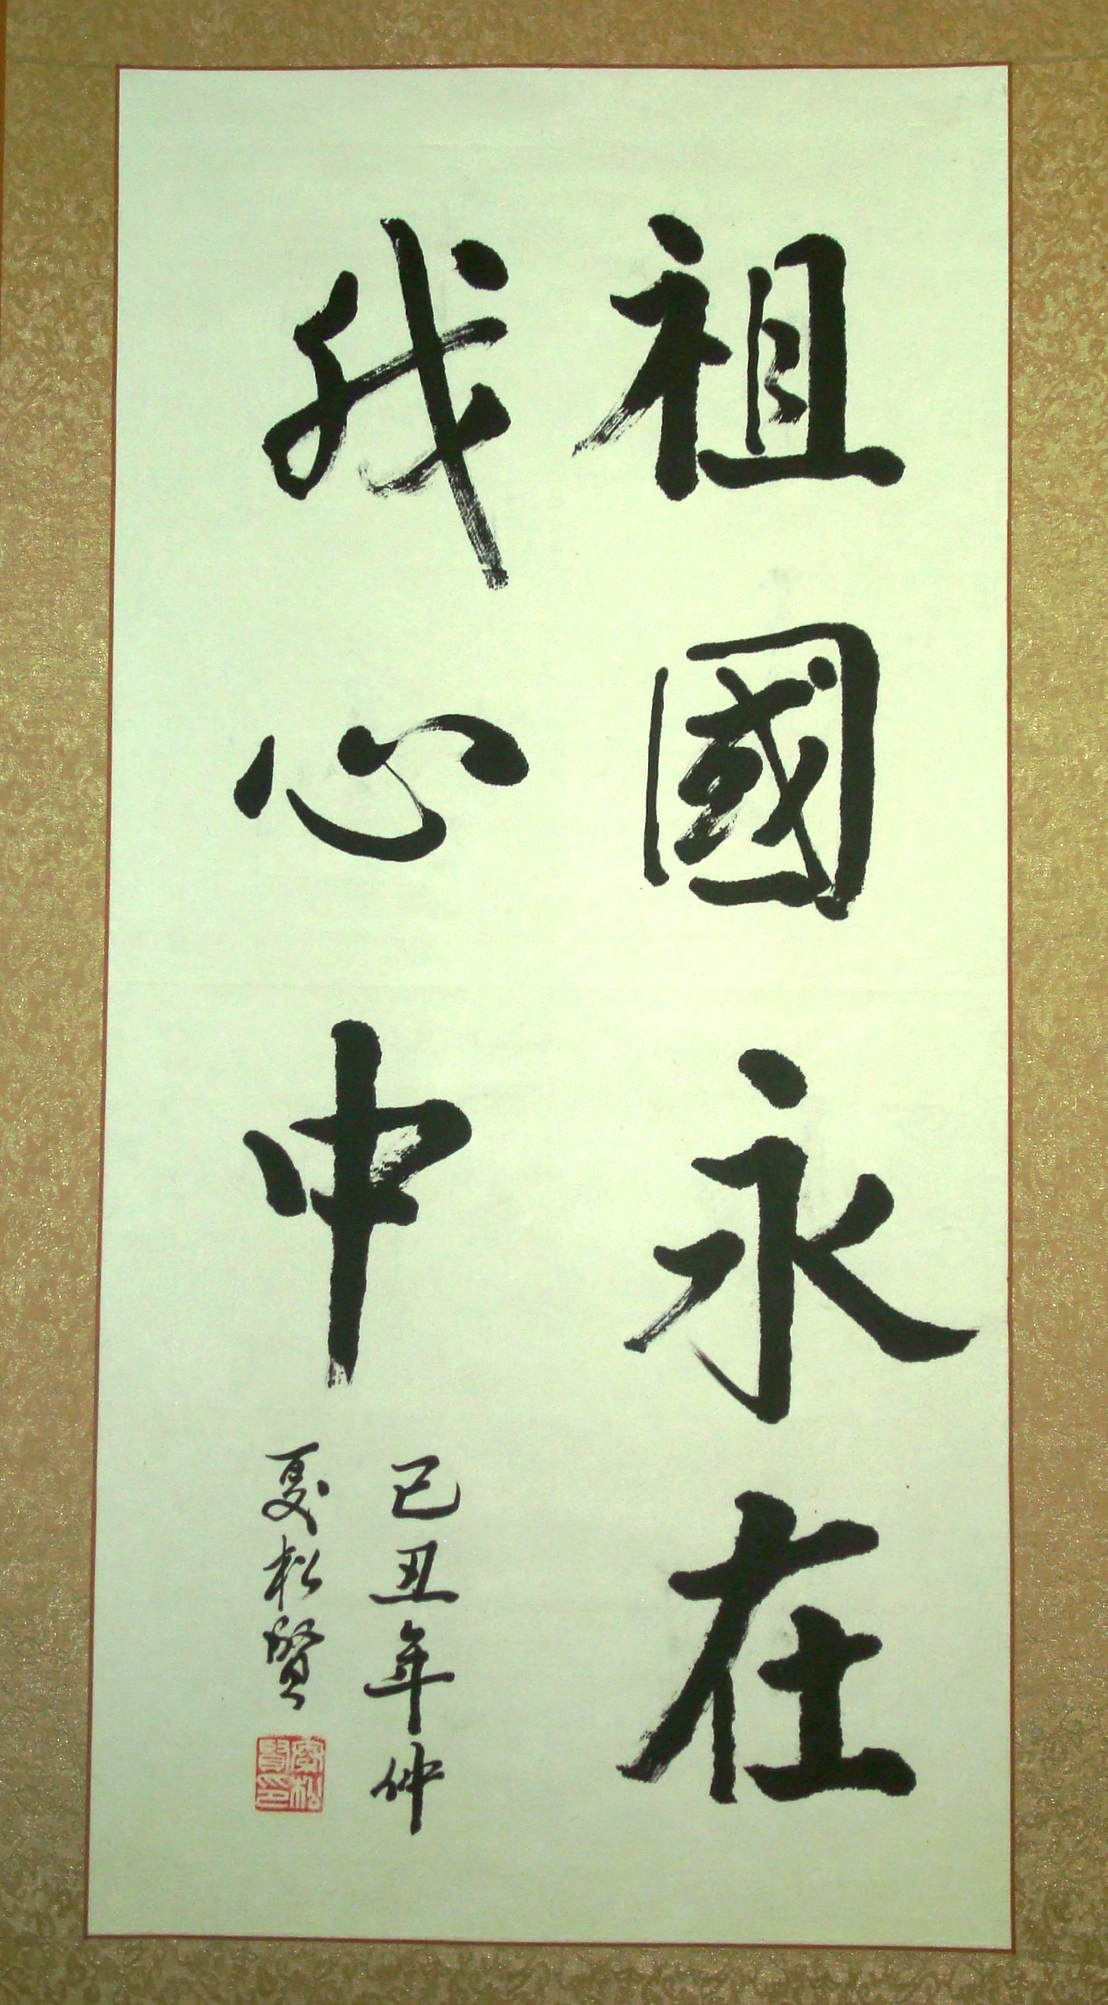 祖國永在
我心中
己丑年仲
夏松賢
松
賢印